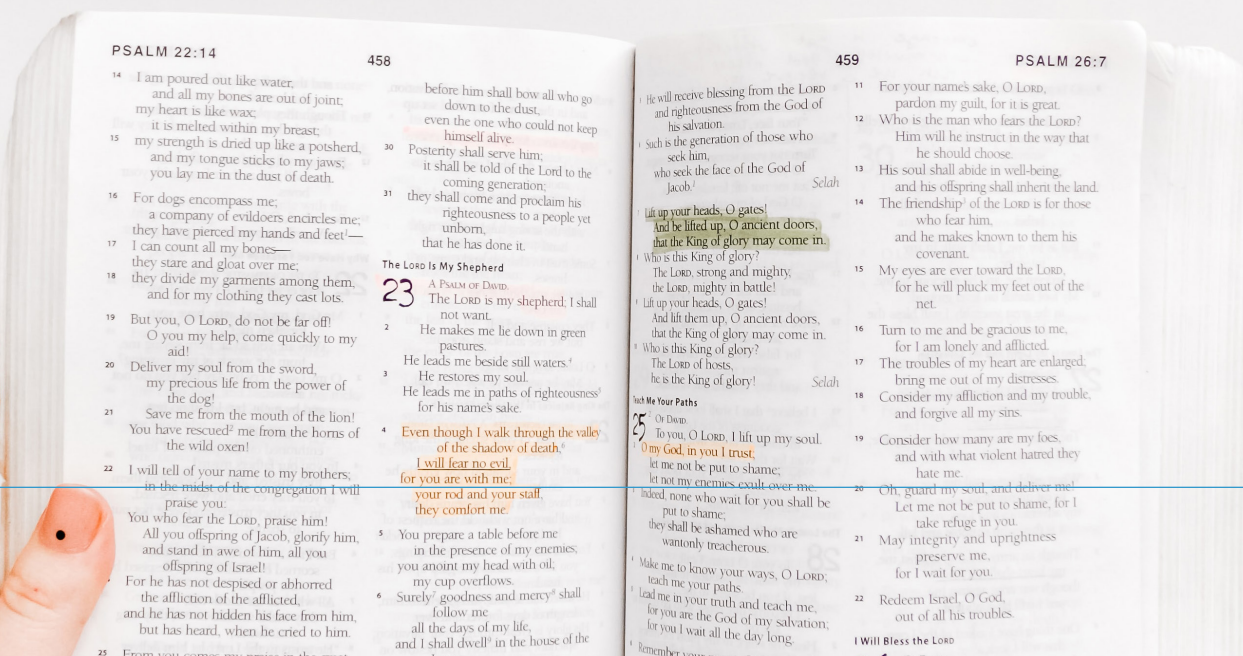 PSALM 22:14
458
14 I am poured out like water,
and all my bones are out of joint;
my heart is like wax;
it is melted within my breast;
15 my strength is dried up like a potsherd,
and my tongue sticks to my jaws;
you lay me in the dust of death.
16 For dogs encompass me;
a company of evildoers encircles me;
they have pierced my hands and feet—
17 I can count all my bones—
they stare and gloat over me;
18 they divide my garments among them,
and for my clothing they cast lots.
19 But you, O LORD, do not be far off!
O you my help, come quickly to my
aid!
20 Deliver my soul from the sword,
my precious life from the power of
the dog!
21 Save me from the mouth of the lion!
You have rescued2 me from the horns of
the wild oxen!
22 I will tell of your name to my brothers;
in the midst of the congregation I will
praise you:
You who fear the LORD, praise him!
All you offspring of Jacob, glorify him,
and stand in awe of him, all you
offspring of Israel!
For he has not despised or abhorred
the affliction of the afflicted,
and he has not hidden his face from him,
but has heard, when he cried to him.
25 From you comes my praise in the great
before him shall bow all who go
down to the dust,
even the one who could not keep
himself alive.
30 Posterity shall serve him;
it shall be told of the Lord to the
coming generation;
31 they shall come and proclaim his
righteousness to a people yet
unborn,
that he has done it.
The LORD Is My Shepherd
23 A PSALM OF DAVID.
The LORD is my shepherd; I shall
not want.
2 He makes me lie down in green
pastures.
He leads me beside still waters.4
3 He restores my soul.
He leads me in paths of righteousness5
for his name's sake.
4 Even though I walk through the valley
of the shadow of death,6
I will fear no evil,
for you are with me;
your rod and your staff,
they comfort me.
5 You prepare a table before me
in the presence of my enemies;
you anoint my head with oil;
my cup overflows.
6 Surely7 goodness and mercy8 shall
follow me
all the days of my life,
and I shall dwell9 in the house of the
459
PSALM 26:7
He will receive blessing from the LORD
and righteousness from the God of
his salvation.
Such is the generation of those who
seek him,
who seek the face of the God of
Jacob. Selah
Lift up your heads, O gates!
And be lifted up, O ancient doors,
that the King of glory may come in.
Who is this King of glory?
The LORD, strong and mighty,
the LORD, mighty in battle!
Lift up your heads, O gates!
And lift them up, O ancient doors,
that the King of glory may come in.
Who is this King of glory?
The LORD of hosts,
he is the King of glory! Selah
Teach Me Your Paths
25 OF DAVID.
To you, O LORD, I lift up my soul.
O my God, in you I trust;
let me not be put to shame;
let not my enemies exult over me.
Indeed, none who wait for you shall be
put to shame;
they shall be ashamed who are
wantonly treacherous.
Make me to know your ways, O LORD;
teach me your paths.
Lead me in your truth and teach me,
for you are the God of my salvation;
for you I wait all the day long.
Remember your
11 For your name's sake, O LORD,
pardon my guilt, for it is great.
12 Who is the man who fears the LORD?
Him will he instruct in the way that
he should choose.
13 His soul shall abide in well-being,
and his offspring shall inherit the land.
14 The friendship of the LORD is for those
who fear him,
and he makes known to them his
covenant.
15 My eyes are ever toward the LORD,
for he will pluck my feet out of the
net.
16 Turn to me and be gracious to me,
for I am lonely and afflicted.
17 The troubles of my heart are enlarged;
bring me out of my distresses.
18 Consider my affliction and my trouble,
and forgive all my sins.
19 Consider how many are my foes,
and with what violent hatred they
hate me.
20 Oh, guard my soul, and deliver me!
Let me not be put to shame, for I
take refuge in you.
21 May integrity and uprightness
preserve me,
for I wait for you.
22 Redeem Israel, O God,
out of all his troubles.
I Will Bless the LORD